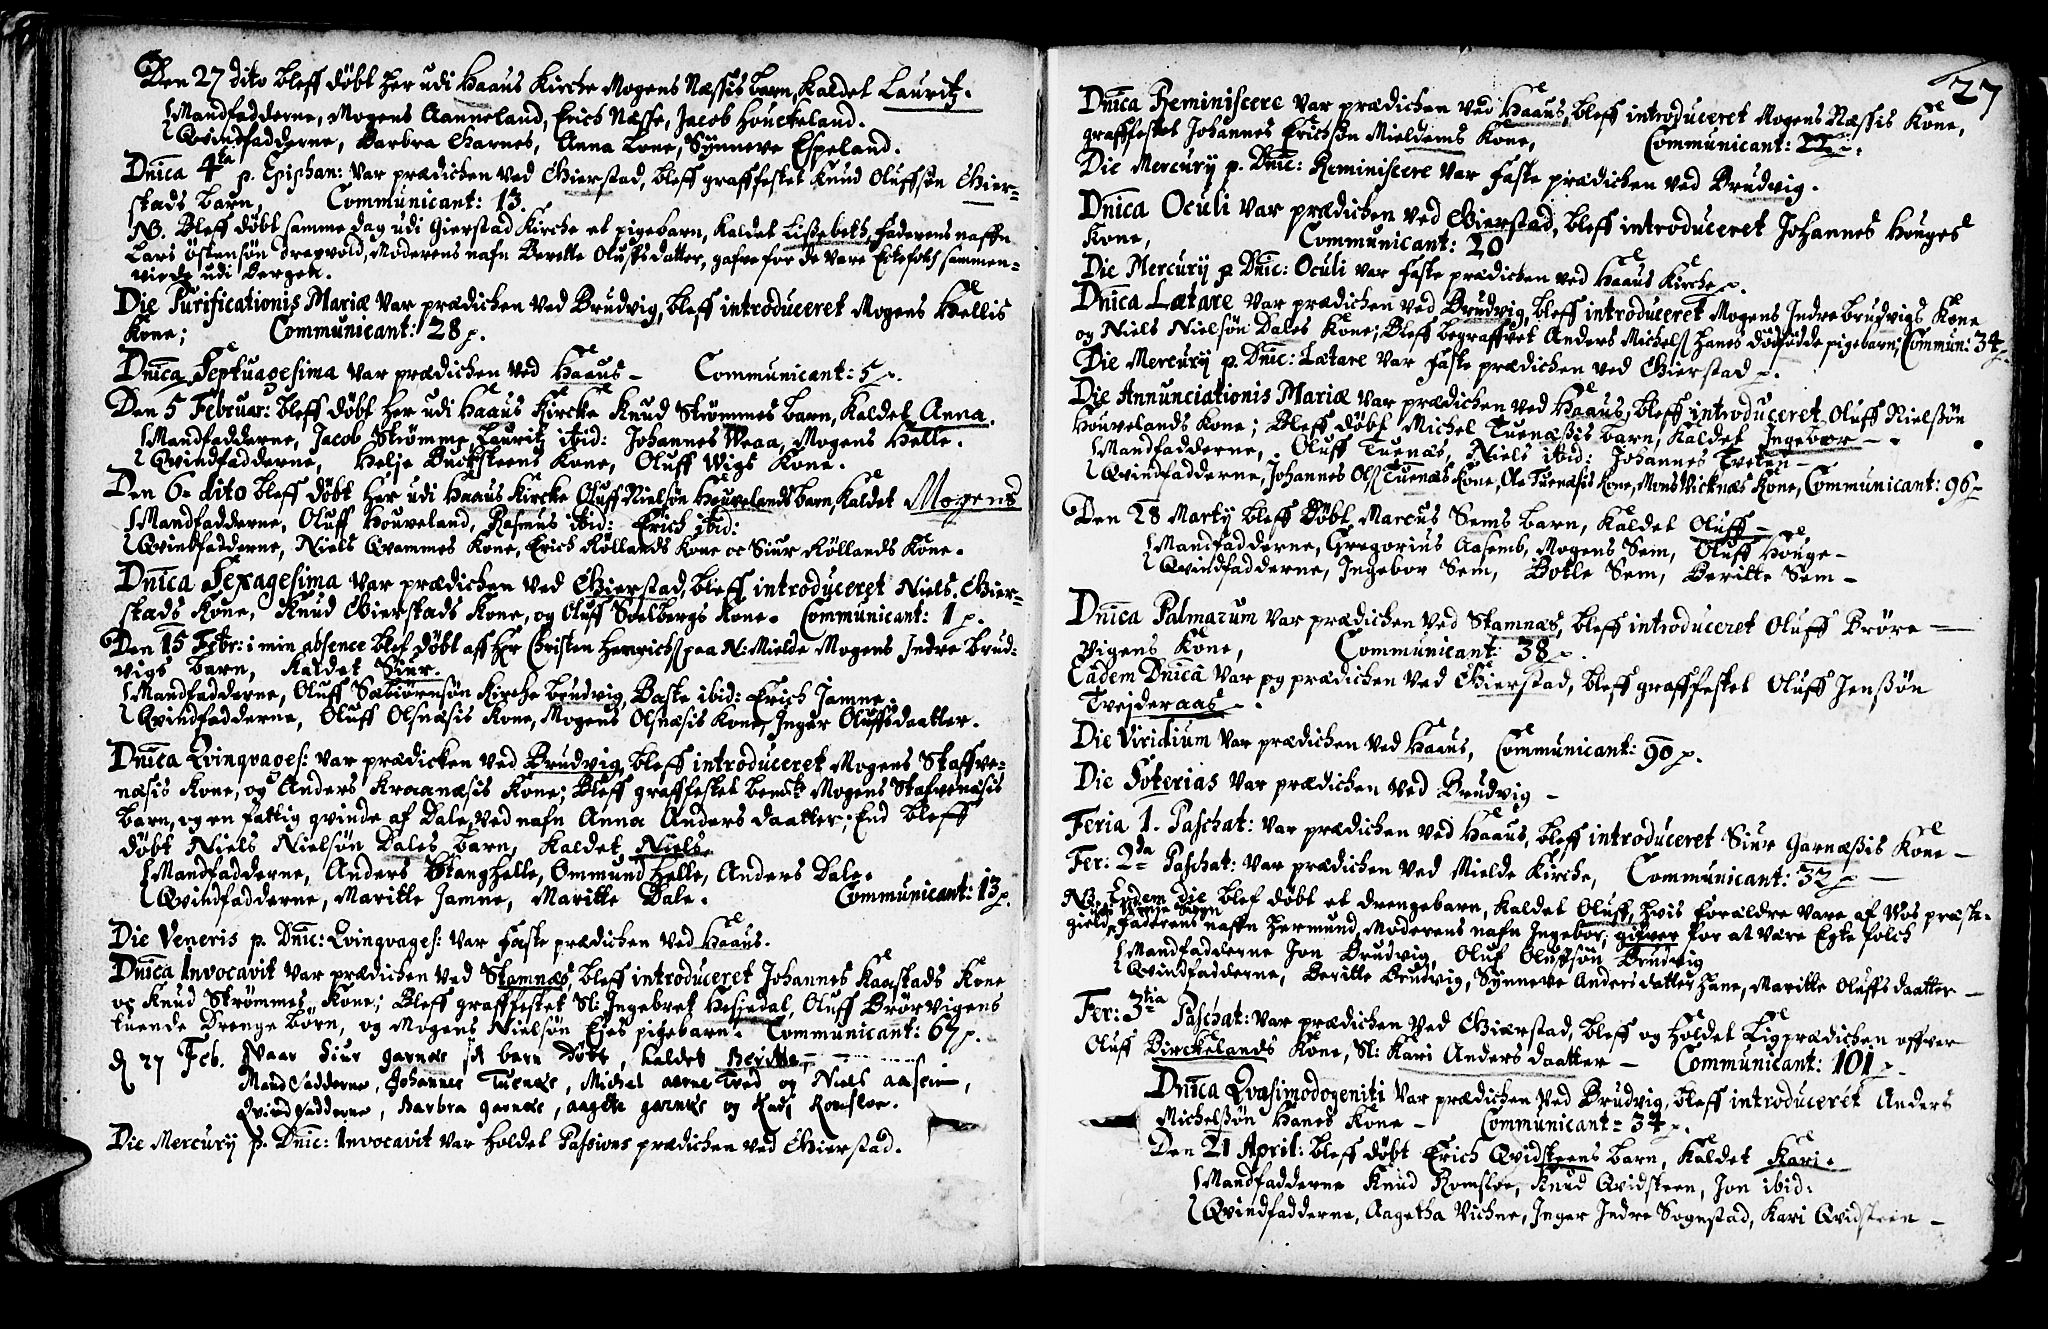 Den 27 dito bleff döbt her udi Haaus Kirche Mogens Næssis barn, Kaldet Lauritz.
Mandfadderne, Mogens Aanneland, Erich Næsse, Jacob Houckeland.
Qvindfadderne, Barbra Garnes, Anna Lone, Synneve Espeland.
Dnica 4ta p. Epiphan: var prædichen ved Gierstad, bleff graffestet Knud Oluffsön Gier=
stads barn, Communicant: 13.
NB. Bleff döbt samme dag udi Gierstad Kirche et pigebarn, Kaldet Lissebeth, Faderens naffn
Lars Östensön Drapvold, Moderens nafn Beritte Oluffsdatter, gafve for de vare Ectefolch sammen=
viede udi Bergen.
Die Purificationis Mariæ var prædichen ved Brudvig, bleff introduceret Mogens Hellis
Kone; Communicant: 28 p.
Dnica Septuagesima var prædichen ved Haaus - Communicant: 5 p.
Den 5 Februar: bleff döbt her udi Haaus Kircke Knud Strömmes barn, Kaldet Anna.
Mandfadderne, Jacob Strömme, Lauritz ibid: Johannes Weaa, Mogens Helle.
Qvindfadderne, Helje Bucksteens Kone, Oluff Wigs Kone.
Den 6 dito bleff döbt her udi Haaus Kircke Oluff Nielsön Houvelands barn, Kaldet Mogens
Mandfadderne, Oluff Houveland, Rasmus ibid: Erich ibid:
Qvindfadderne, Niels Qvammes Kone, Erich Röllands Kone oc Siur Röllands Kone.
Dnica Sexagesima var prædichen ved Gierstad, bleff introduceret Niels Gier=
stads Kone, Knud Gierstads Kone, og Oluff Soelbergs Kone. Communicant: 1 p.
Den 15 Febr: i min absence blef döbt aff Hr Christen Henrichs paa N: Mielde Mogens Indre Brud=
vigs barn, Kaldet Siur.
Mandfadderne, Oluff Sabiörnsön Kirche brudvig, Baste ibid: Erich Jamne.
Qvindfadderne, Oluff Olsnæsis Kone, Mogens Olsnæsis Kone, Inger Oluffsdaatter.
Dnica Qvinqvages: var prædicken ved Brudvig, bleff introduceret Mogens Staffve=
næsis Kone, og Anders Kraanæsis Kone; Bleff graffestet bemte Mogens Stafvenæsis
barn, og en fattig qvinde af Dale, ved nafn Anna Anders daatter; End bleff
döbt Niels Nielsön Dales barn, Kaldet Niels.
Mandfadderne, Anders Stanghelle, Ommund Helle, Anders Dale.
Qvindfadderne, Maritte Jamne, Maritte Dale. Communicant: 13 p.
Die Veneris p. Dnic: Qvinqvages: var Faste prædichen ved Haaus.
Dnica Invocavit var prædichen ved Stamnæs, bleff introduceret Johannes Kaastads Kone
og Knud Strömmes Kone; Bleff graffestet Sl: Ingebret Hesjedal, Oluff Brörvigens
tuende Drenge börn, og Mogens Nielsön Eses pigebarn. Communicant: 67 p.
d 27 Feb. Naar Siur garnæs sit barn döbt, kaldet Beritte
Mandfadderne, Johannes Tuenæs, Michel Tved og Niels aasem,
Qvindfadderne, Barbra garnæs, aagete garnæs og Romsloe.
Die Mercury p. Dnic: Invocavit var holdet Passions prædichen ved Gierstad.
27
Dnica Reminiscere var prædichen ved Haaus, bleff introduceret Mogens Næssis Kone,
graffestet Johannes Erichsön Mieldems Kone, Communicant: 22 p.
Die Mercury p. Dnic: Reminiscere var Faste prædichen ved Brudvig.
Dnica Oculi var prædichen ved Gierstad, bleff introduceret Johannes Houges
Kone, Communicant: 20
Die Mercury p Dnic: Oculi var Faste prædichen ved Haaus Kirche p.
Dnica Lætare var prædichen ved Brudvig, bleff introduceret Mogens Indre brudvigs Kone
og Niels Nielsön Dales Kone; Bleff begraffvet Anders Michels Hanes dödfödde pigebarn; Commun: 34 p.
Die Mercury p. Dnic: Lætare var Faste prædichen ved Gierstad p.
Die Annunciationis Mariæ var prædichen ved Haaus, bleff introduceret Oluff Nielssön
Houvelands Kone; Bleff döbt Michel Tuenæssis barn, Kaldet Ingebor -
Mandfadderne, Oluff Tuenæs, Niels ibid: Johannes Tveten -
Qvindfadderne, Johannes Ols Tuenæs Kone, Ole Tuenæsis Kone, Mons Vicknæs Kone, Communicant: 96 -
Den 28 Marty bleff döbt Marcus Sems barn, Kaldet Oluff -
Mandfadderne, Gregorius Aasemb, Mogens Sem, Oluff Houge -
Qvindfadderne, Ingebor Sem, Botle Sem, Beritte Sem -
Dnica Palmarum var prædichen ved Stamnæs, bleff introduceret Oluff Bröre
vigens Kone, Communicant: 38 p.
Eadem Dnica var og prædichen ved Gierstad, bleff graffestet Oluff Jenssön
Tvejderaas -
Die Viridium var prædichen ved Haaus, Communicant: 90 p.
Die Soterias var prædichen ved Brudvig -
Feria 1. Paschat: var prædichen ved Haaus, bleff introduceret Siur Garnæssis Kone -
Fer: 2da Paschat: var prædichen ved Mielde Kirche, Communicant: 32 p -
NB. Eadem Die blef döbt et drengebarn, Kaldet Oluff, hvis forældre vare af Vos præste=
gield, Faderens naffn Hermund, Moderens nafn Ingebor, gifver for at være Egte folch
Mandfadderne Jon Brudvig, Oluf Olufsön Brudvig
Qvindfadderne, Beritte Brudvig, Synneve Andersdatter Hane, Maritte Oluffsdaatter -
Fer: 3tia Paschat: var prædichen ved Giærstad, bleff og holdet Ligprædichen offver
Oluff Birckelands Kone, Sl: Kari Anders daatter - Communicant: 101 p.
Dnica Qvasimodogeniti var prædichen ved Brudvig, bleff introduceret Anders
Michelssön Hanes Kone - Communicant: 34 p.
Den 21 April: bleff döbt Erich Qvidsteens barn, Kaldet Kari.
Mandfadderne Knud Romsloe, Knud Qvidsteen, Jon ibid:
Qvindfadderne, Aagetha Vichne, Inger Indre Songstad, Kari Qvidsteen -